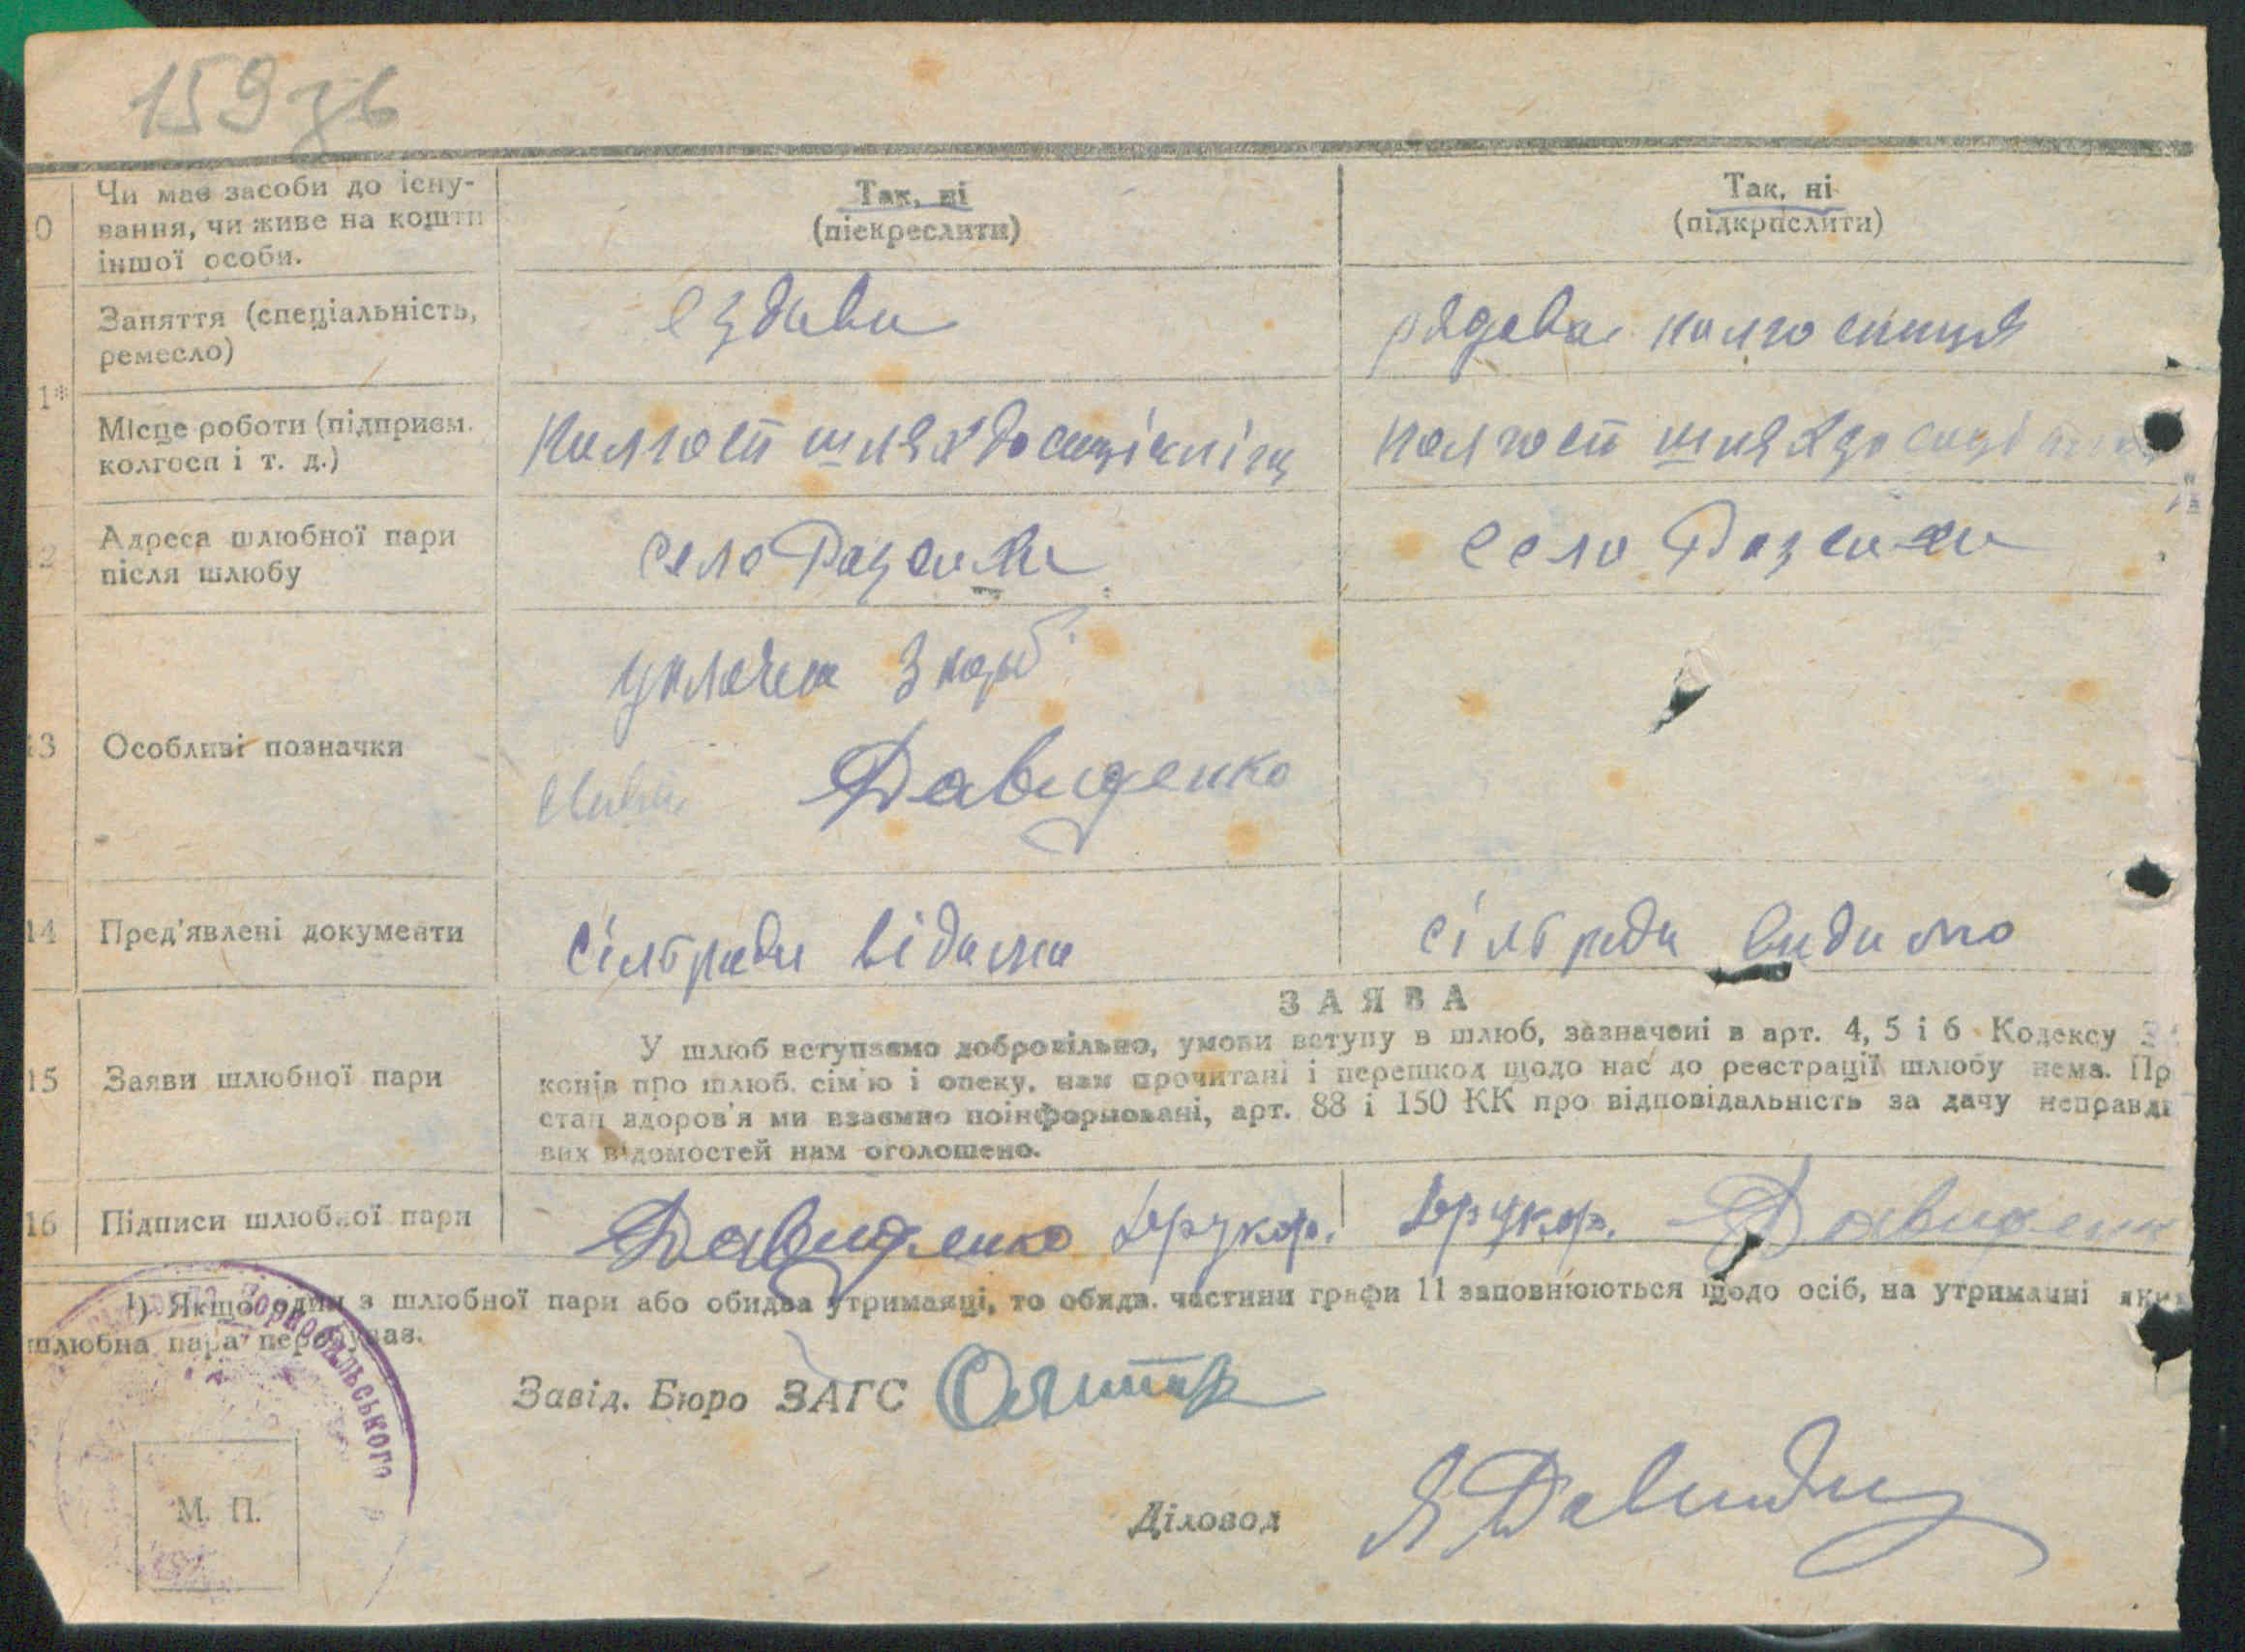 159 зв
10 Чи має засоби до існу-
вання, чи живе на кошти
іншої особи.
Так, ні
(піекреслити)
Так, ні
(підкрпслити)
Заняття (спеціальність,
ремесло)
єздови
рядова колгоспниця
1*
Місце роботи (підприєм.
колгосп і т. д.)
Колгосп шлях до соціалізм
колгосп шлях до соці
12 Адреса шлюбної пари
після шлюбу
село
село
13 Особливі позначки
уплочен 3 карб.
Давиденко
14 Пред'явлені документи
сільради відома
сільради видомо
ЗАЯВА
15 Заяви шлюбної пари
У шлюб вступаємо добровільно, умови вступу в шлюб, зазначені в арт. 4, 5 і 6 Кодексу З
конів про шлюб. сім'ю і опеку, нам прочитані і перешкод щодо нас до реєстрації шлюбу нема. Пр
стан здоров'я ми взаємно поінформовані, арт. 88 і 150 КК про відповідальність за дачу неправди
вих відомостей нам оголошено.
16 Підписи шлюбної пари
Давиденко
Давиденк
1) Якщо один з шлюбної пари або обидва утриманці, то обидв. частини графи 11 заповнюються щодо осіб, на утриманні яких
шлюбна пара перебуває.
Чорнобильського
Завід. Бюро ЗАГС
Діловод
М. П.